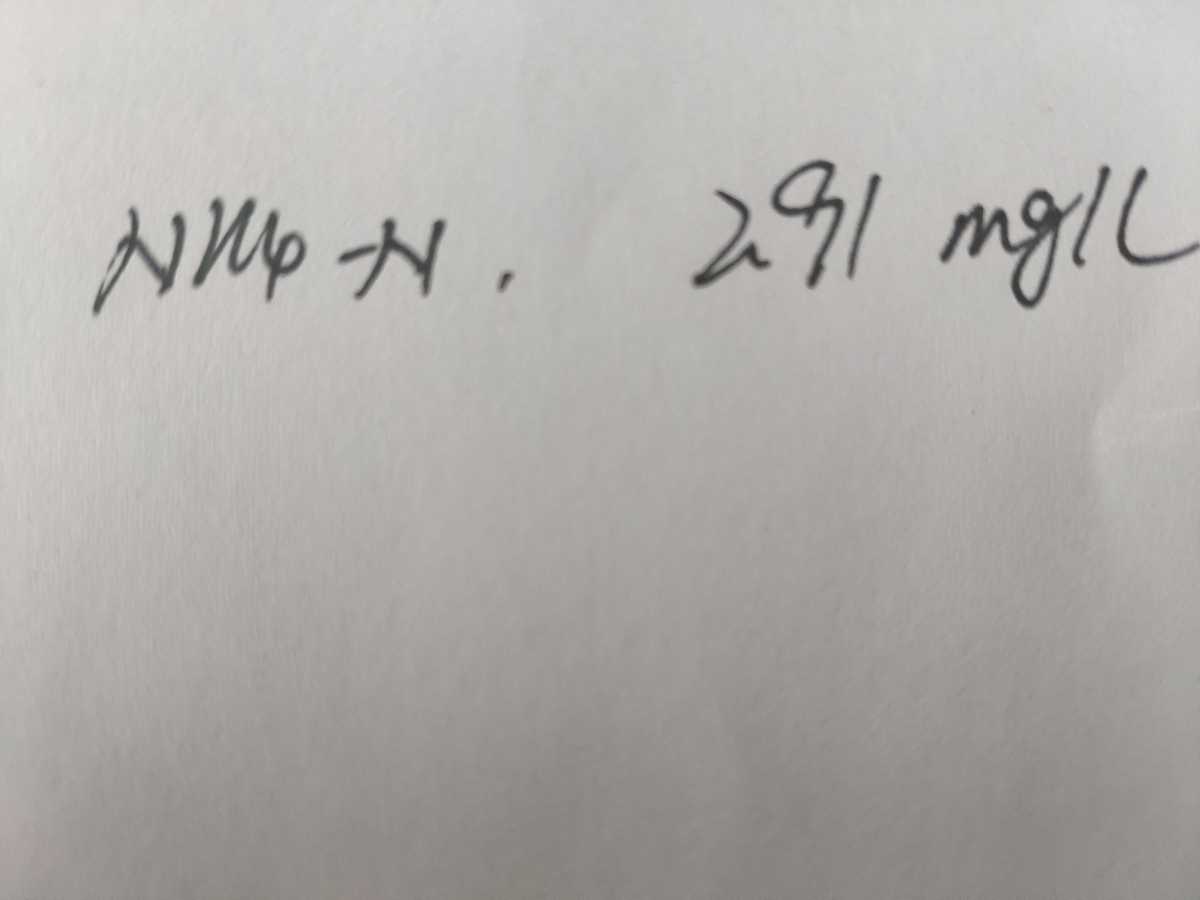 NH4-N. 291 mg/L